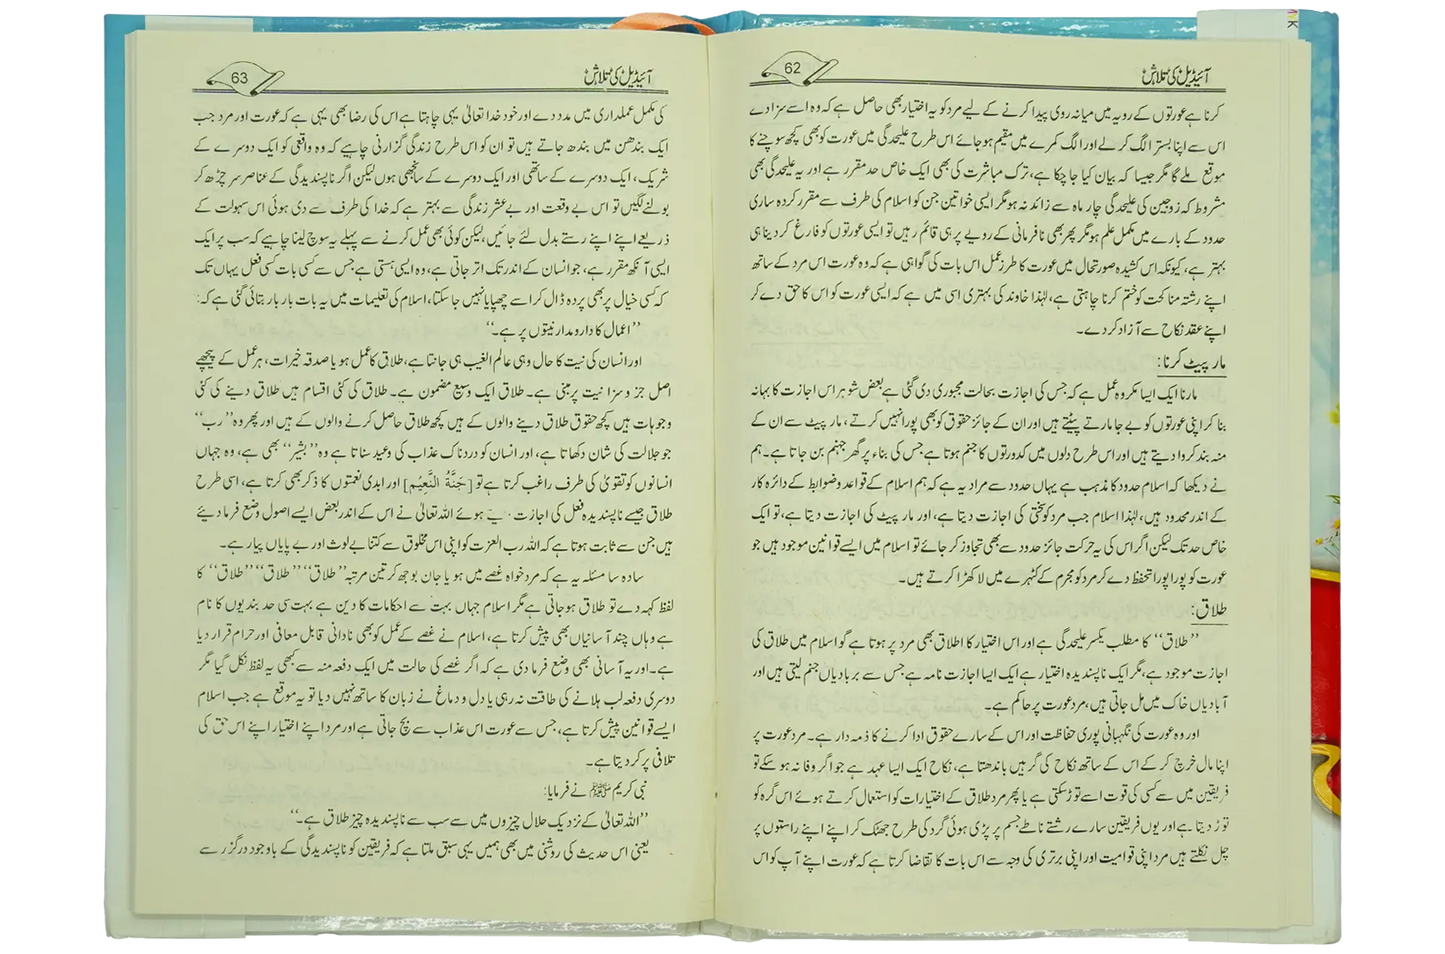 آئیڈیل کی تلاش
62
کرنا ہے عورتوں کے رویہ میں میانہ روی پیدا کرنے کے لیے مرد کو یہ اختیار بھی حاصل ہے کہ وہ اسے سزا دے
اس سے اپنا بستر الگ کر لے اور الگ کمرے میں مقیم ہو جائے اس طرح علیحدگی میں عورت کو بھی کچھ سوچنے کا
موقع ملے گا مگر جیسا کہ بیان کیا جا چکا ہے، ترک مباشرت کی بھی ایک خاص حد مقرر ہے اور یہ علیحدگی بھی
مشروط کہ زوجین کی علیحدگی چار ماہ سے زائد نہ ہو مگر ایسی خواتین جن کو اسلام کی طرف سے مقرر کردہ ساری
حدود کے بارے میں مکمل علم ہو مگر پھر بھی نافرمانی کے رویے پر ہی قائم رہیں تو ایسی عورتوں کو فارغ کر دینا ہی
بہتر ہے، کیونکہ اس کشیدہ صورتحال میں عورت کا طرز عمل اس بات کی گواہی ہے کہ وہ عورت اس مرد کے ساتھ
اپنے رشتہ مناکحت کو ختم کرنا چاہتی ہے، لہٰذا خاوند کی بہتری اسی میں ہے کہ ایسی عورت کو اس کا حق دے کر
اپنے عقد نکاح سے آزاد کر دے۔
مار پیٹ کرنا:
مارنا ایک ایسا مکروہ عمل ہے کہ جس کی اجازت بحالت مجبوری دی گئی ہے بعض شوہر اس اجازت کا بہانہ
بنا کر اپنی عورتوں کو بے جا مارتے پیٹتے ہیں اور ان کے جائز حقوق کو بھی پورا نہیں کرتے، مار پیٹ سے ان کے
منہ بند کروا دیتے ہیں اور اس طرح دلوں میں کدورتوں کا جنم ہوتا ہے جس کی بناء پر گھر جہنم بن جاتا ہے۔ ہم
نے دیکھا کہ اسلام حدود کا مذہب ہے یہاں حدود سے مراد یہ ہے کہ ہم اسلام کے قواعد و ضوابط کے دائرہ کار
کے اندر محدود ہیں، لہٰذا اسلام جب مرد کو سختی کی اجازت دیتا ہے، اور مار پیٹ کی اجازت دیتا ہے، تو ایک
خاص حد تک لیکن اگر اس کی یہ حرکت جائز حدود سے بھی تجاوز کر جائے تو اسلام میں ایسے قوانین موجود ہیں جو
عورت کو پورا پورا تحفظ دے کر مرد کو مجرم کے کٹہرے میں لا کھڑا کرتے ہیں۔
طلاق:
’’طلاق‘‘ کا مطلب یکسر علیحدگی ہے اور اس اختیار کا اطلاق بھی مرد پر ہوتا ہے گو اسلام میں طلاق کی
اجازت موجود ہے، مگر ایک ناپسندیدہ اختیار ہے ایک ایسا اجازت نامہ ہے جس سے بربادیاں جنم لیتی ہیں اور
آبادیاں خاک میں مل جاتی ہیں، مرد عورت پر حاکم ہے۔
اور وہ عورت کی نگہبانی پوری حفاظت اور اس کے سارے حقوق ادا کرنے کا ذمہ دار ہے۔ مرد عورت پر
اپنا مال خرچ کر کے اس کے ساتھ نکاح کی گرہیں باندھتا ہے، نکاح ایک ایسا عہد ہے جو اگر وفا نہ ہو سکے تو
فریقین میں سے کسی کی قوت اسے توڑ سکتی ہے یا پھر مرد طلاق کے اختیارات کو استعمال کرتے ہوئے اس گرہ کو
توڑ دیتا ہے اور یوں فریقین سارے رشتے ناطے جسم پر پڑی ہوئی گرد کی طرح جھٹک کر اپنے اپنے راستوں پر
چل نکلتے ہیں مرد اپنی قوامیت اور اپنی برتری کی وجہ سے اس بات کا تقاضا کرتا ہے کہ عورت اپنے آپ کو اس
آئیڈیل کی تلاش
63
کی مکمل عملداری میں مدد دے اور خود خدا تعالیٰ یہی چاہتا ہے اس کی رضا بھی یہی ہے کہ عورت اور مرد جب
ایک بندھن میں بندھ جاتے ہیں تو ان کو اس طرح زندگی گزارنی چاہیے کہ وہ واقعی کو ایک دوسرے کے
شریک، ایک دوسرے کے ساتھی اور ایک دوسرے کے سانجھی ہوں لیکن اگر ناپسندیدگی کے عناصر سر چڑھ کر
بولنے لگیں تو اس بے وقعت اور بے عشر زندگی سے بہتر ہے کہ خدا کی طرف سے دی ہوئی اس سہولت کے
ذریعے اپنے اپنے رستے بدل لئے جائیں، لیکن کوئی بھی عمل کرنے سے پہلے یہ سوچ لینا چاہیے کہ سب پر ایک
ایسی آنکھ مقرر ہے، جو انسان کے اندر تک اتر جاتی ہے، وہ ایسی ہستی ہے جس سے کسی بات کسی فعل یہاں تک
کہ کسی خیال پر بھی پردہ ڈال کر اسے چھپایا نہیں جا سکتا، اسلام کی تعلیمات میں یہ بات بار بار بتائی گئی ہے کہ:
’’اعمال کا دارومدار نیتوں پر ہے۔‘‘
اور انسان کی نیت کا حال وہی عالم الغیب ہی جانتا ہے، طلاق کا عمل ہو یا صدقہ خیرات، ہر عمل کے پیچھے
اصل جز و سزا نیت پر مبنی ہے۔ طلاق ایک وسیع مضمون ہے۔ طلاق کی کئی اقسام ہیں طلاق دینے کی کئی
وجوہات ہیں کچھ حقوق طلاق دینے والوں کے ہیں کچھ طلاق حاصل کرنے والوں کے ہیں اور پھر وہ ’’رب‘‘
جو جلالت کی شان دکھاتا ہے، اور انسان کو دردناک عذاب کی وعید سناتا ہے وہ ’’بشیر‘‘ بھی ہے، وہ جہاں
انسانوں کو تقویٰ کی طرف راغب کرتا ہے تو [جَنَّۃُ النَّعِیْمِ] اور ابدی نعمتوں کا ذکر بھی کرتا ہے، اسی طرح
طلاق جیسے ناپسندیدہ فعل کی اجازت ہوئے اللہ تعالیٰ نے اس کے اندر بعض ایسے اصول وضع فرما دیئے
ہیں جن سے ثابت ہوتا ہے کہ اللہ رب العزت کو اپنی اس مخلوق سے کتنا بے لوث اور بے پایاں پیار ہے۔
سادہ سا مسئلہ یہ ہے کہ مرد خواہ غصے میں ہو یا جان بوجھ کر تین مرتبہ ’’طلاق‘‘ ’’طلاق‘‘ ’’طلاق‘‘ کا
لفظ کہہ دے تو طلاق ہو جاتی ہے مگر اسلام جہاں بہت سے احکامات کا دین ہے بہت سی حد بندیوں کا نام
ہے وہاں چند آسانیاں بھی پیش کرتا ہے، اسلام نے غصے کے عمل کو بھی نادانی قابل معافی اور حرام قرار دیا
ہے۔ اور یہ آسانی بھی وضع فرما دی ہے کہ اگر غصے کی حالت میں ایک دفعہ منہ سے کبھی یہ لفظ نکل گیا مگر
دوسری دفعہ لب ہلانے کی طاقت نہ رہی یا دل و دماغ نے زبان کا ساتھ نہیں دیا تو یہ موقع ہے جب اسلام
ایسے قوانین پیش کرتا ہے، جس سے عورت اس عذاب سے بچ جاتی ہے اور مرد اپنے اختیار اپنے اس حق کی
تلافی پر کر دیتا ہے۔
نبی کریم ﷺ نے فرمایا:
’’اللہ تعالیٰ کے نزدیک حلال چیزوں میں سے سب سے ناپسندیدہ چیز طلاق ہے۔‘‘
یعنی اس حدیث کی روشنی میں بھی ہمیں یہی سبق ملتا ہے کہ فریقین کو ناپسندیدگی کے باوجود درگزر سے